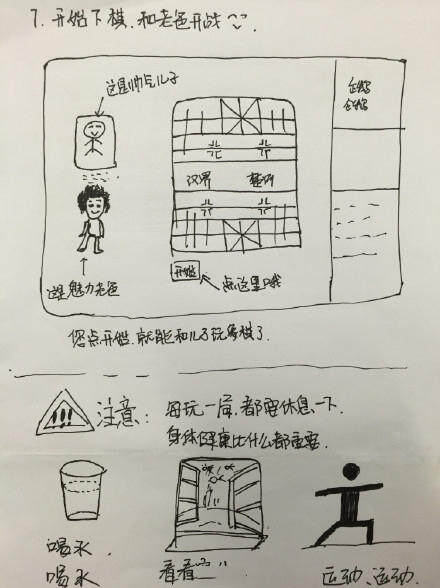 7. 开始下棋.和老爸开战
这是帅气儿子
汉界 楚河
开始
点这里哦
这是魅力老爸
您点开始.就能和儿子玩象棋了.
!!!
注意: 每玩一局,都要休息一下.
身体健康比什么都重要.
喝水.
喝水
看看
运动、运动.